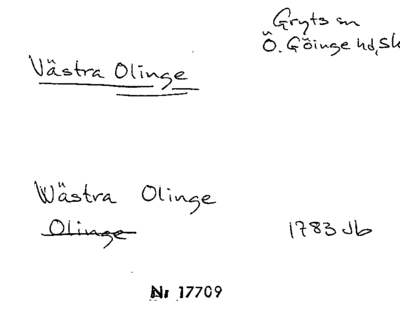 Gryts sn
Ö. Göinge hd, Sk
Västra Olinge
Wästra Olinge
Olinge
1783 Jb
Nr 17709